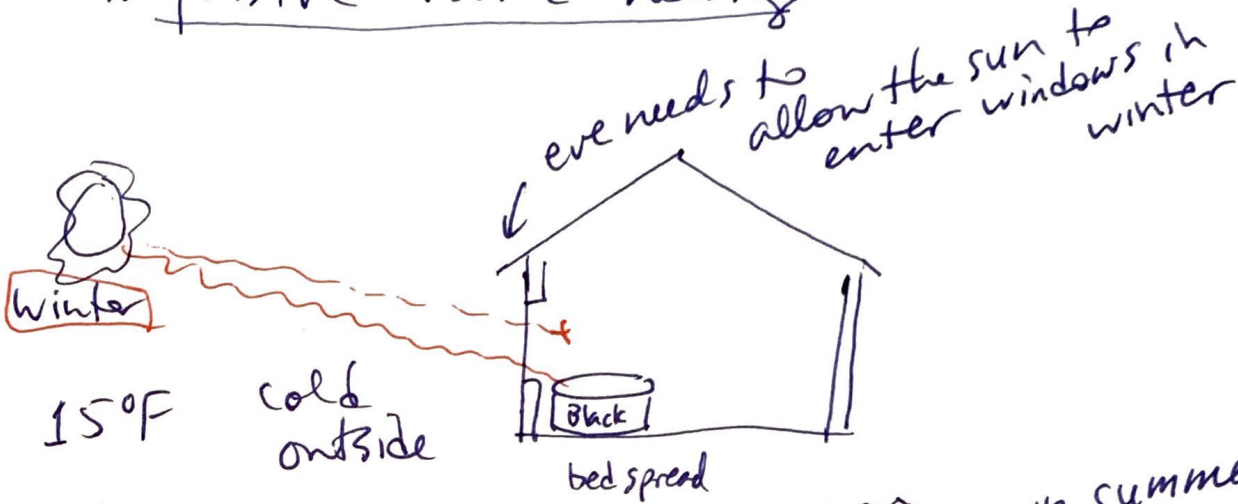 eve needs to
allow the sun to
enter windows in
winter
Winter
15°F
cold
outside
Black
bed spread
summe